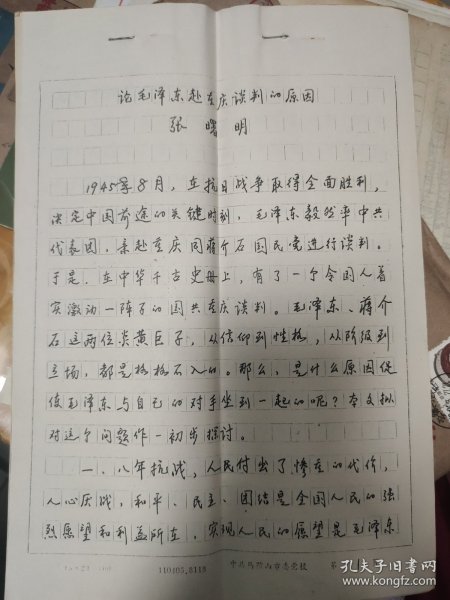 论毛泽东赴重庆谈判的原因
张曙明
1945年8月，在抗日战争取得全面胜利，
决定中国前途的关键时刻，毛泽东毅然率中共
代表团，亲赴重庆同蒋介石国民党进行谈判。
于是，在中华千古史册上，有了一个令国人着
实激动一阵子的国共重庆谈判。毛泽东、蒋介
石这两位炎黄巨子，从信仰到性格，从阶级到
立场，都是格格不入的。那么，是什么原因促
使毛泽东与自己的对手坐到一起的呢？本文拟
对这个问题作一初步探讨。
一、八年抗战，人民付出了惨重的代价，
人心厌战，和平、民主、团结是全国人民的强
烈愿望和利益所在，实现人民的愿望是毛泽东
110405.8118
中共马鞍山市委党校
第
孔夫子旧书网
www.kongfz.com